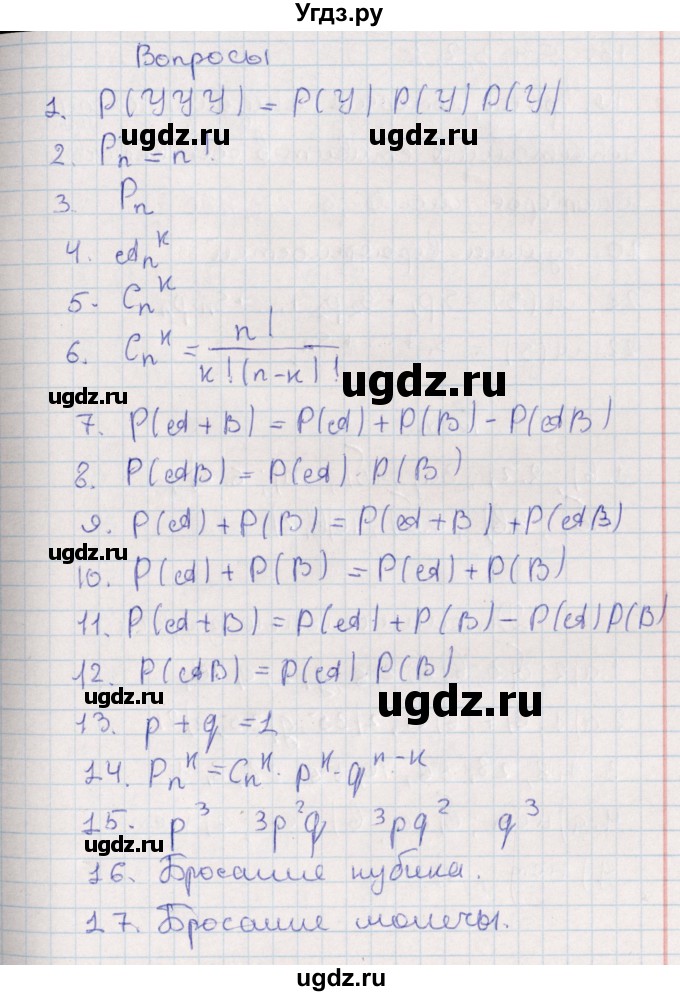 Угдз.ру
Вопросы
1. P(УУУ) = P(У) P(У) P(У)
ugdz.ru ugdz.ru
2. Pn = n!
3. Pn
4. Aₙᴷ
5. Cₙᴷ
6. Cₙᴷ = n! / к!(n-к)!
ugdz.ru ugdz.ru
7. P(A+B) = P(A) + P(B) - P(AB)
8. P(AB) = P(A) · P(B)
9. P(A) + P(B) = P(A+B) + P(AB)
ugdz.ru
10. P(A) + P(B) = P(A) + P(B)
11. P(A+B) = P(A) + P(B) - P(A)P(B)
12. P(AB) = P(A) · P(B)
ugdz.ru ugdz.ru
13. p + q = 1
14. Pₙᴷ = Cₙᴷ · pᴷ · qⁿ⁻ᴷ
ugdz.ru ugdz.ru
15. p³ 3p²q 3pq² q³
16. Бросание кубика.
17. Бросание монеты.
ugdz.ru